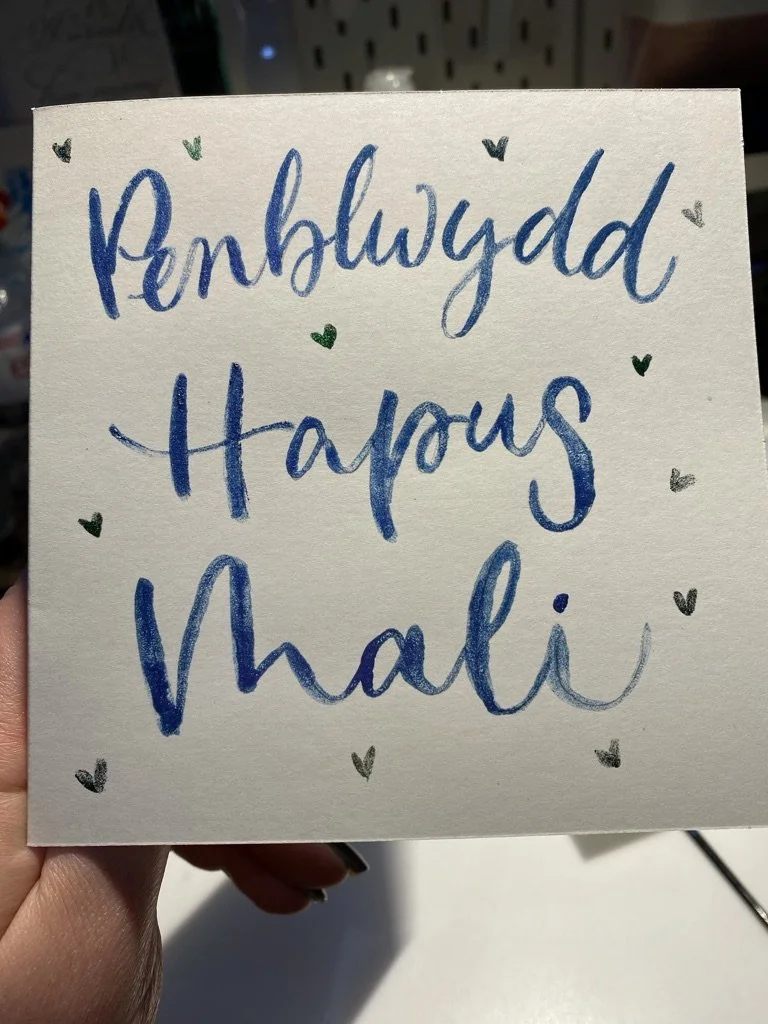 Penblwydd
Hapus
Mali